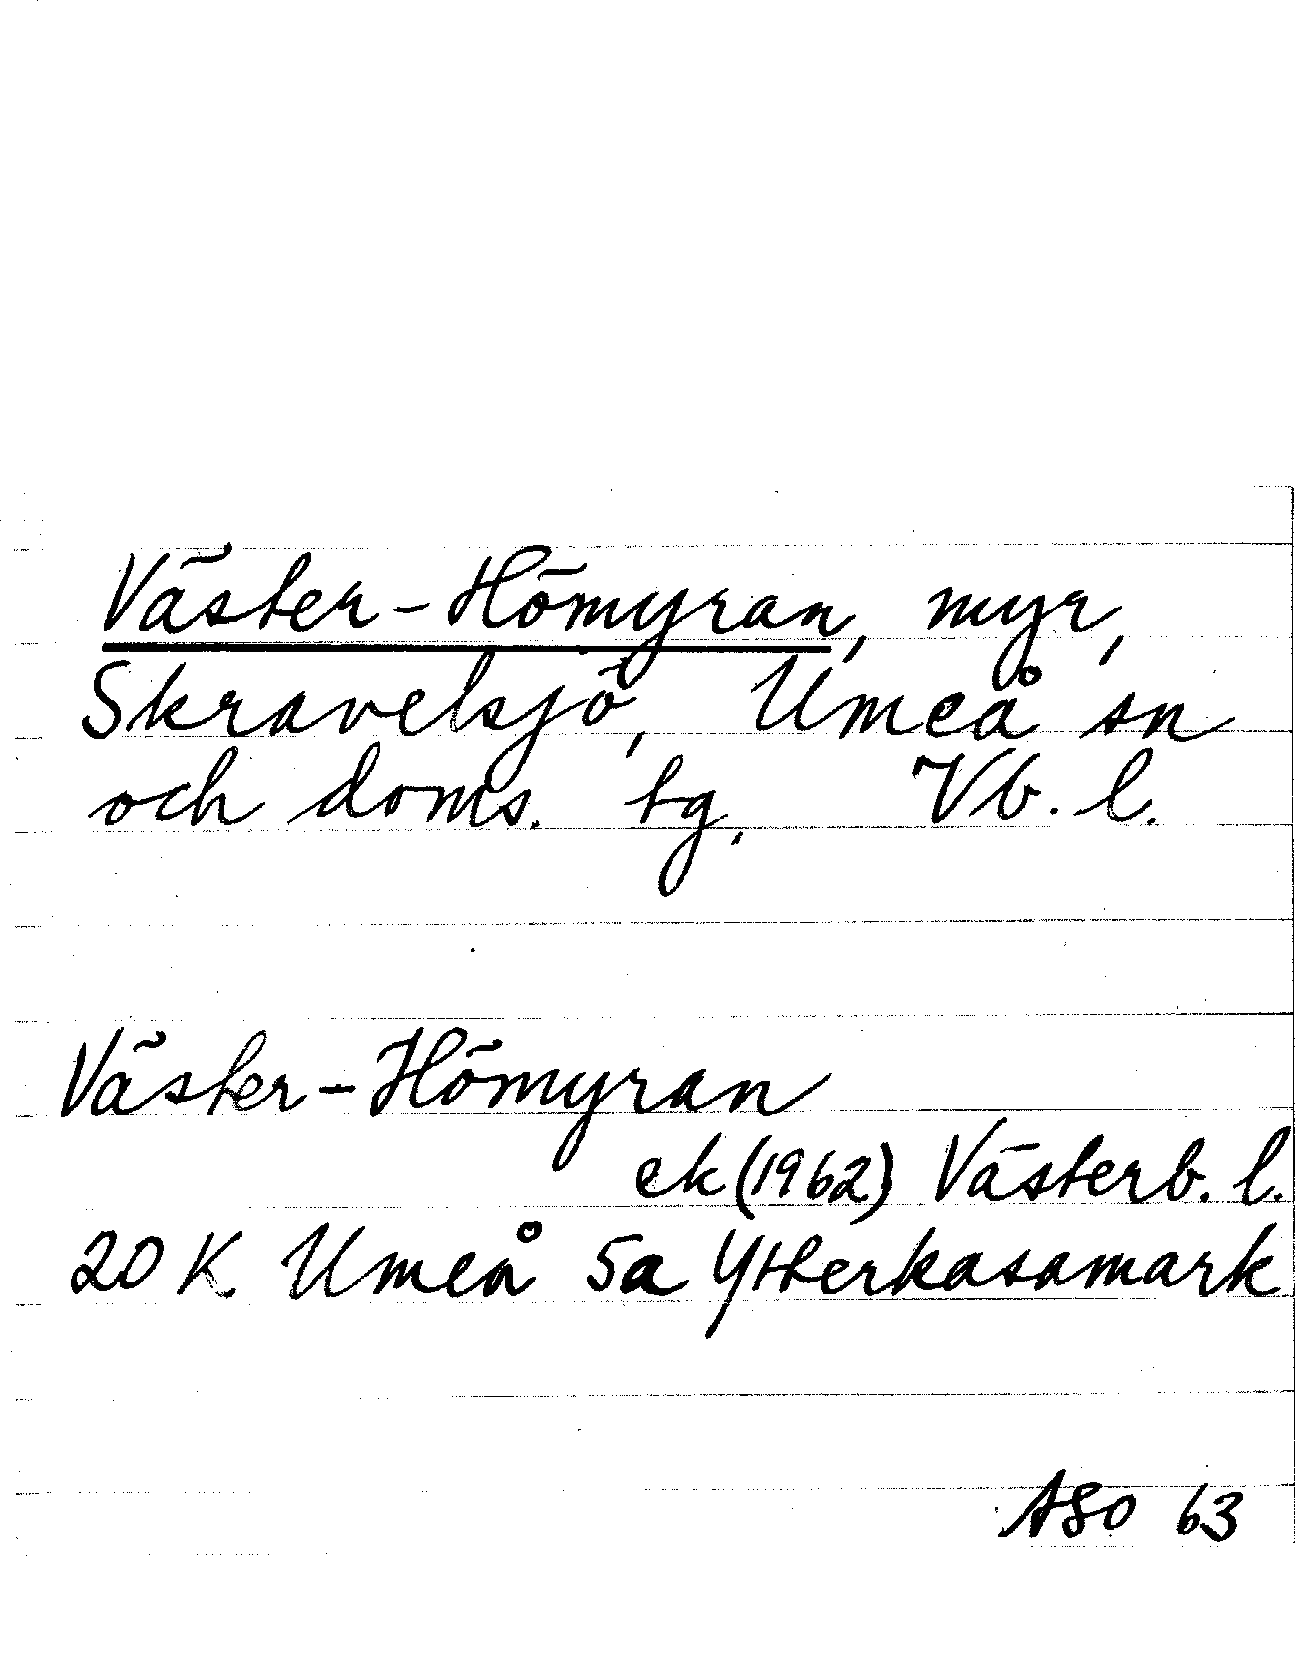 Väster-Hömyran, myr,
Skravelsjö, Umeå sn
och doms. tg, Vb. l.
Väster-Hömyran
ek (1962) Västerb. l.
20 K Umeå 5a Ytterkasamark
ASO 63